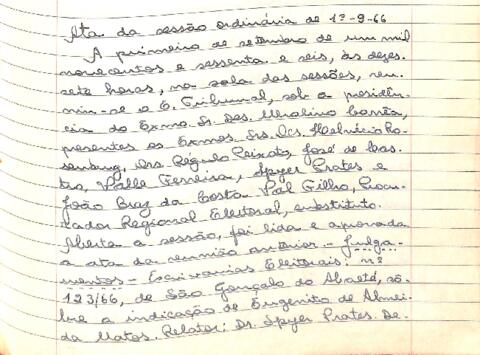 Ata da sessão ordinária de 1º-9-66
A primeiro de setembro de um mil
novecentos e sessenta e seis, às dezes-
sete horas, na sala das sessões, reu-
niu-se o E. Tribunal, sob a presidên-
cia do Exmo. Sr. Des. Merolino Corrêa,
presentes os Exmos. Srs. Drs. Helvécio Ro-
senburg, Drs. Régulo Peixoto, José de Cas-
tro, Valle Ferreira, Spyer Prates e
João Braz da Costa Val Filho, Procu-
rador Regional Eleitoral, substituto.
Aberta a sessão, foi lida e aprovada
a ata da reunião anterior - Julga-
mentos - Escrivanias Eleitorais: nº
123/66, de São Gonçalo do Abaeté, sô-
bre a indicação de Eugenito de Almei-
da Matos. Relator: Dr. Spyer Prates. De-